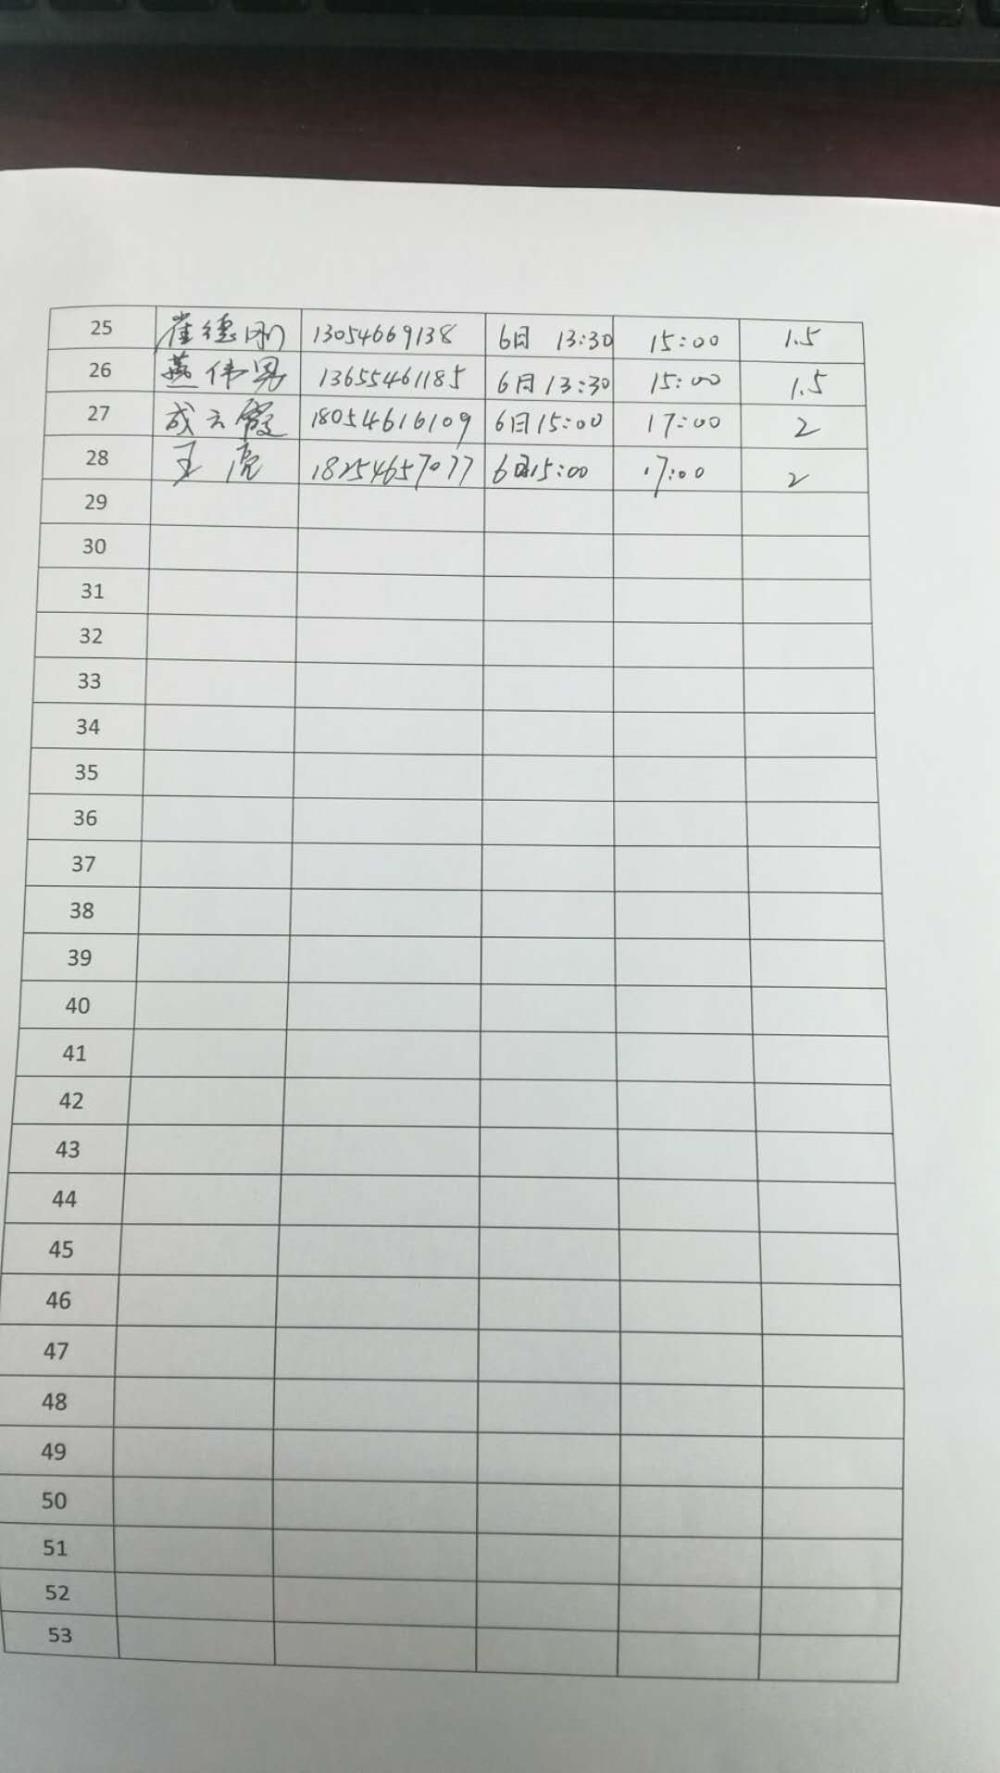 25 崔德刚 13054669138 6日 13:30 15:00 1.5
26 燕伟男 13655461185 6日 13:30 15:00 1.5
27 成云霞 18054616109 6日 15:00 17:00 2
28 王虎 18254657077 6日 15:00 17:00 2
29
30
31
32
33
34
35
36
37
38
39
40
41
42
43
44
45
46
47
48
49
50
51
52
53